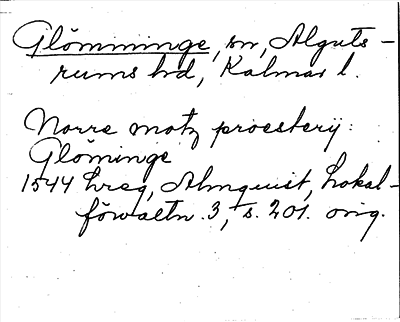 Glömminge, sn, Alguts-
rums hd, Kalmar l.
Norre motz proesterij:
Glöminge
1544 hreg, Almquist, Lokal-
förvaltn. 3, s. 201. orig.